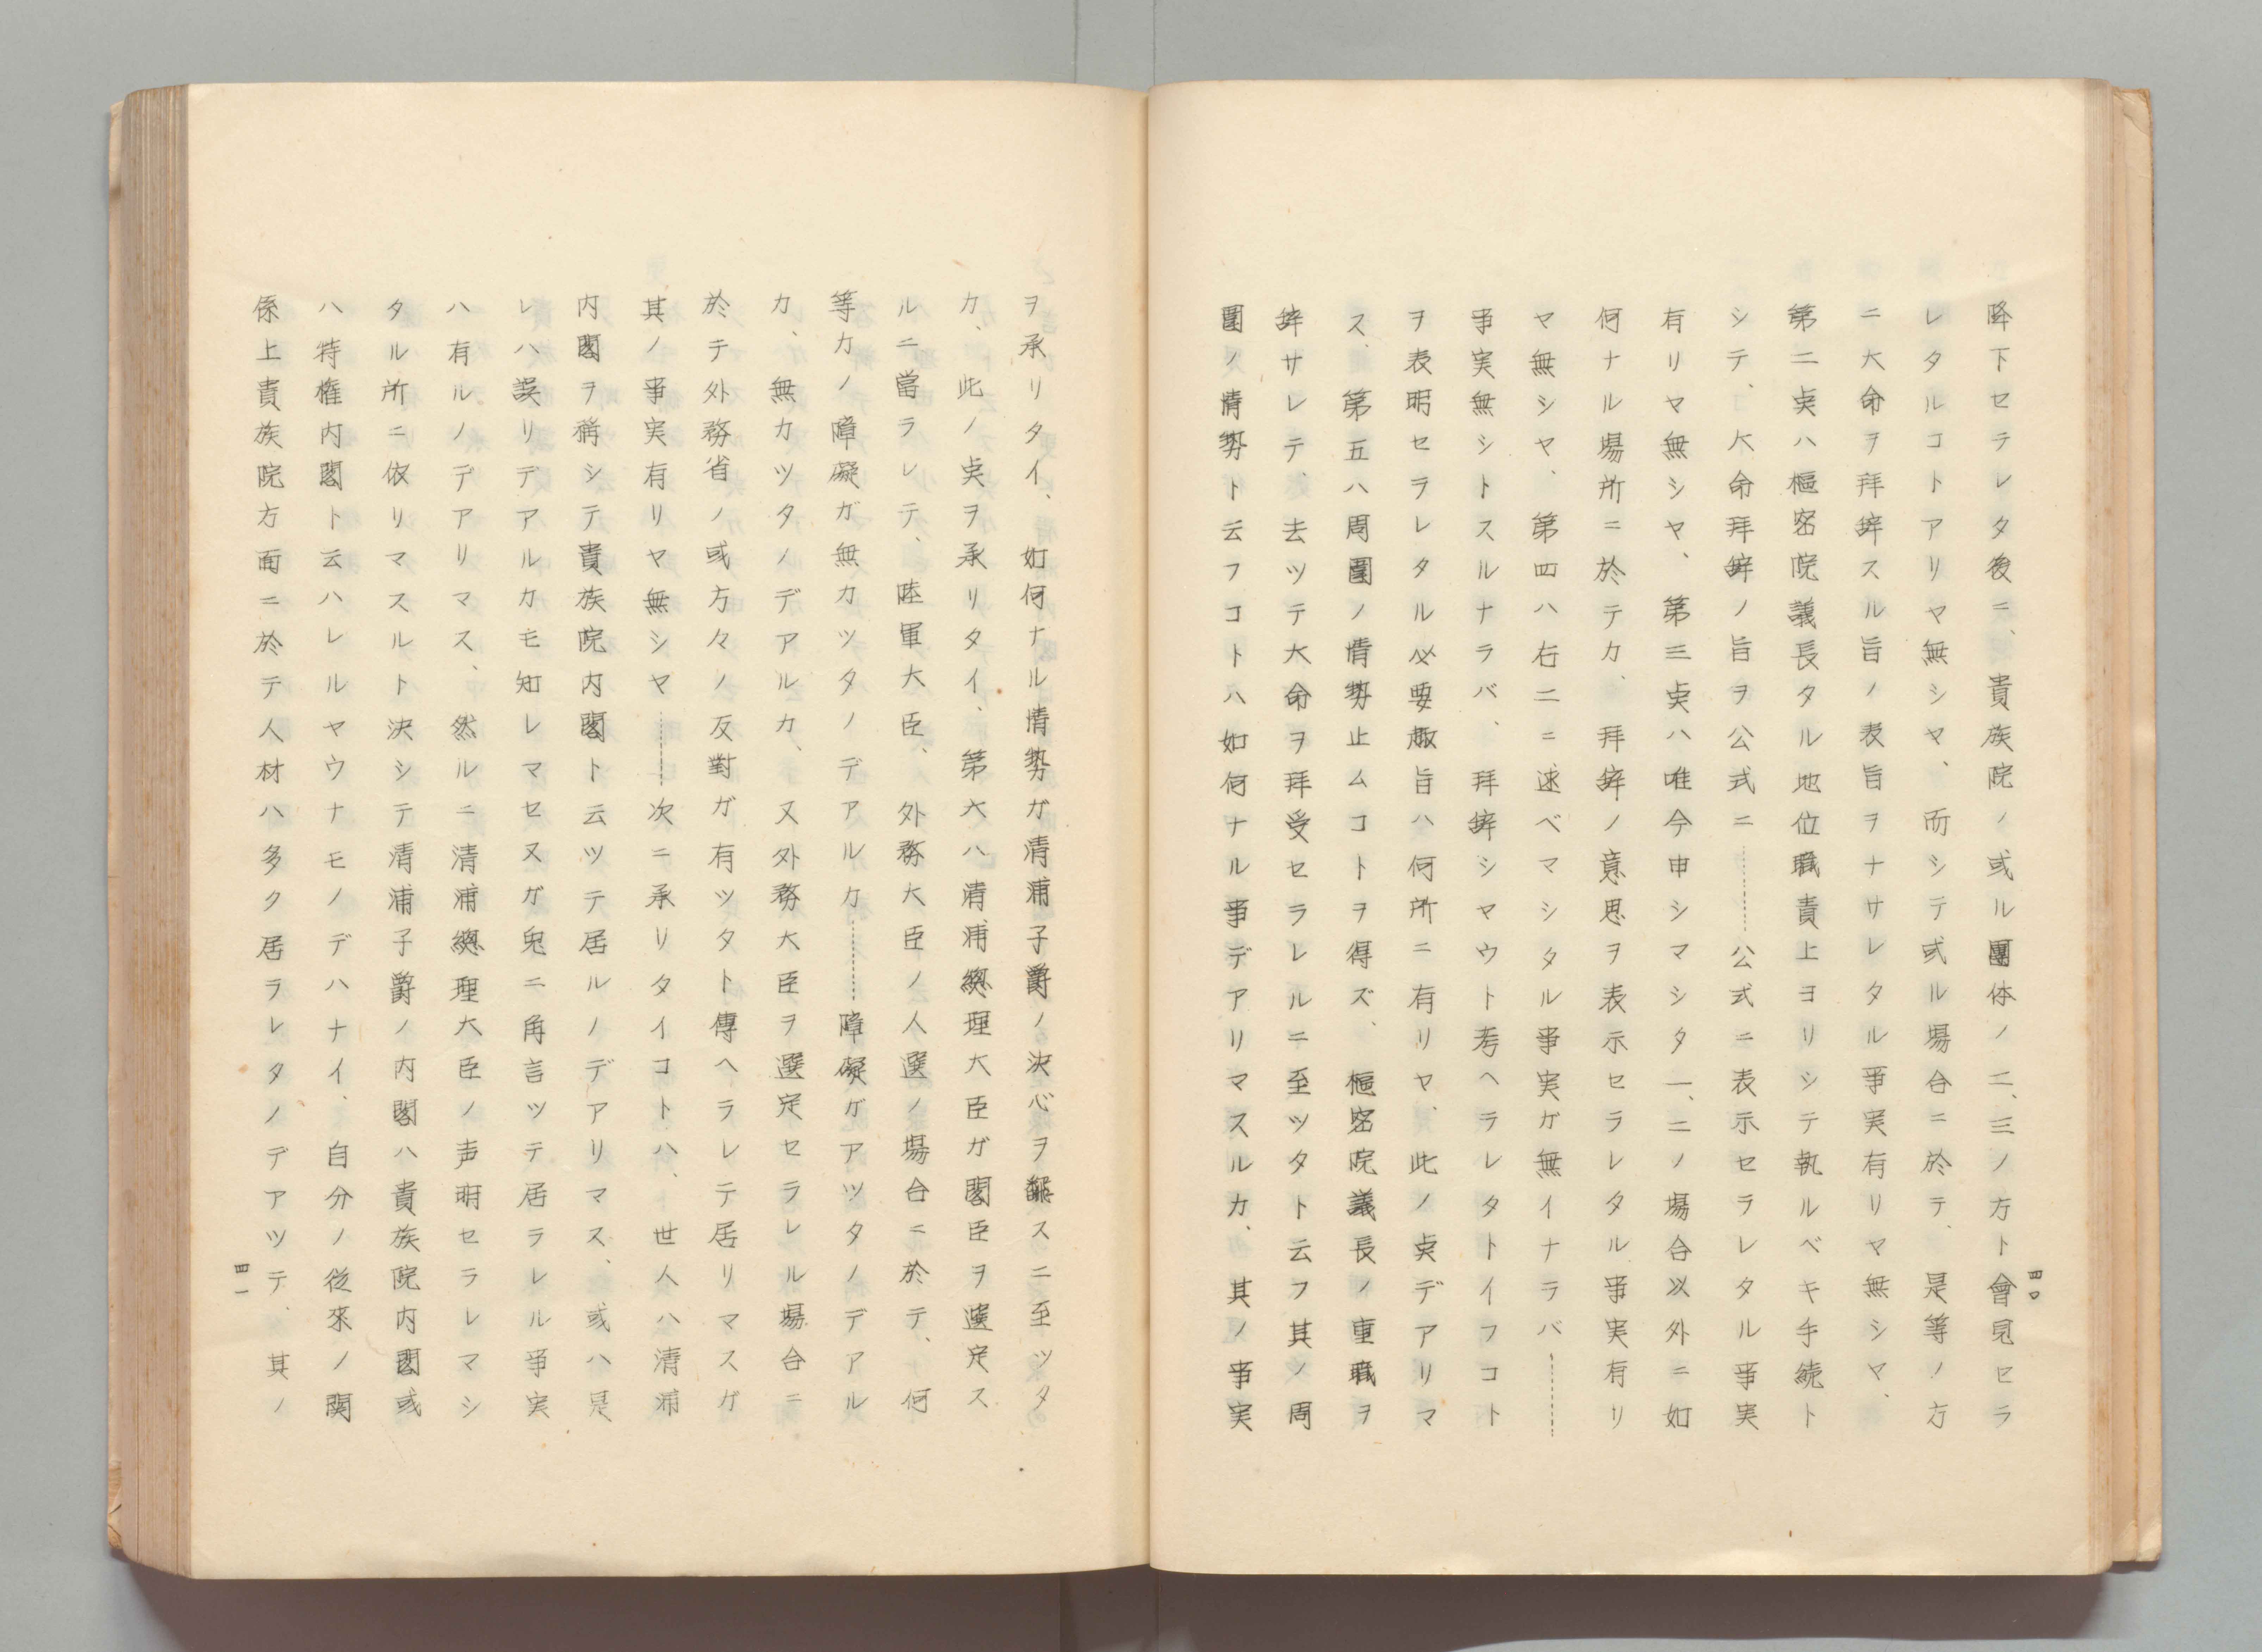 四〇
降下セラレタ後ニ、貴族院ノ或ル團体ノ二、三ノ方ト會見セラ
レタルコトアリヤ無シヤ、而シテ或ル場合ニ於テ、是等ノ方
ニ大命ヲ拜辞スル旨ノ表旨ヲナサレタル事実有リヤ無シヤ、
第二点ハ樞密院議長タル地位職責上ヨリシテ執ルベキ手続ト
シテ、大命拜辞ノ旨ヲ公式ニ………公式ニ表示セラレタル事実
有リヤ無シヤ、第三点ハ唯今申シマシタ一、二ノ場合以外ニ如
何ナル場所ニ於テカ、拜辞ノ意思ヲ表示セラレタル事実有リ
ヤ無シヤ、第四ハ右二ニ述ベマシタル事実ガ無イナラバ………
事実無シトスルナラバ、拜辞シマウト考ヘラレタトイフコト
ヲ表明セラレタル必要趣旨ハ何所ニ有リヤ、此ノ点デアリマ
ス、第五ハ周圍ノ情勢止ムコトヲ得ズ、樞密院議長ノ重職ヲ
辞サレテ、去ツテ大命ヲ拜受セラレルニ至ツタト云フ其ノ周
圍ノ情勢ト云フコトハ如何ナル事デアリマスルカ、其ノ事実
ヲ承リタイ、如何ナル情勢ガ清浦子爵ノ決心ヲ飜スニ至ツタ
カ、此ノ点ヲ承リタイ、第六ハ清浦總理大臣ガ閣臣ヲ選定ス
ルニ當ラレテ、陸軍大臣、外務大臣ノ人選ノ場合ニ於テ、何
等カノ障礙ガ無カツタノデアルカ………障礙ガアツタノデアル
カ、無カツタノデアルカ、又外務大臣ヲ選定セラレル場合ニ
於テ外務省ノ或方々ノ反對ガ有ツタト傳ヘラレテ居リマスガ
其ノ事実有リヤ無シヤ………次ニ承リタイコトハ、世人ハ清浦
内閣ヲ稱シテ貴族院内閣ト云ツテ居ルノデアリマス、或ハ是
レハ誤リデアルカモ知レマセヌガ兎ニ角言ツテ居ラレル事実
ハ有ルノデアリマス、然ルニ清浦總理大臣ノ声明セラレマシ
タル所ニ依リマスルト決シテ清浦子爵ノ内閣ハ貴族院内閣或
ハ特権内閣ト云ハレルヤウナモノデハナイ、自分ノ従来ノ関
係上貴族院方面ニ於テ人材ハ多ク居ラレタノデアツテ、其ノ
四一